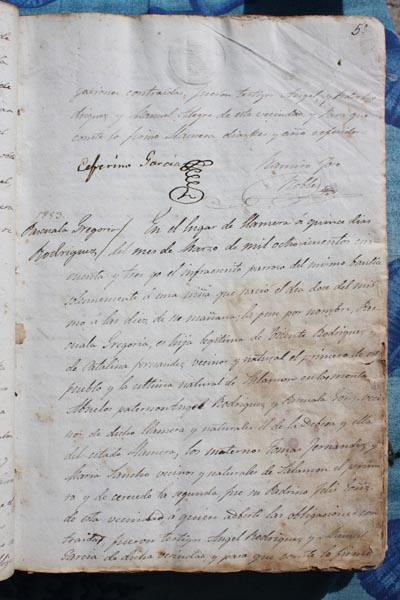 5
gaciones contraidas, fueron testigos Angel
y Manuel Alegre de esta vecindad, y para que
conste lo firmo Llamera dia, mes y año referido
Ceferino Garcia
Robles
1853
Pascuala Gregoria
Rodriguez
En el lugar de Llamera á quince dias
del mes de Marzo de mil ochocientos cin
cuenta y tres yo el infraescrito parroco del mismo bautice
solemnemente á una niña que nacio el dia doce del mis
mo a las diez de su mañana, la puse por nombre, Pas
cuala Gregoria, es hija legitima de Vicente Rodriguez
de Catalina Fernandez vecinos y natural el primero de este
pueblo y la ultima natural de Salamon
Abuelos paternos Angel Rodriguez y Pascuala veci
nos de dicho Llamera y naturales el de la y ella
del citado Llamera, los maternos Tomas Fernandez y
Maria Sancho vecinos y naturales de Salamon el prime
ro y de la segunda, fue su Padrino
de esta vecindad á quien adverti las obligaciones con
traidas, fueron testigos Angel Rodriguez y Manuel
Garcia de dicha vecindad, y para que conste lo firmo